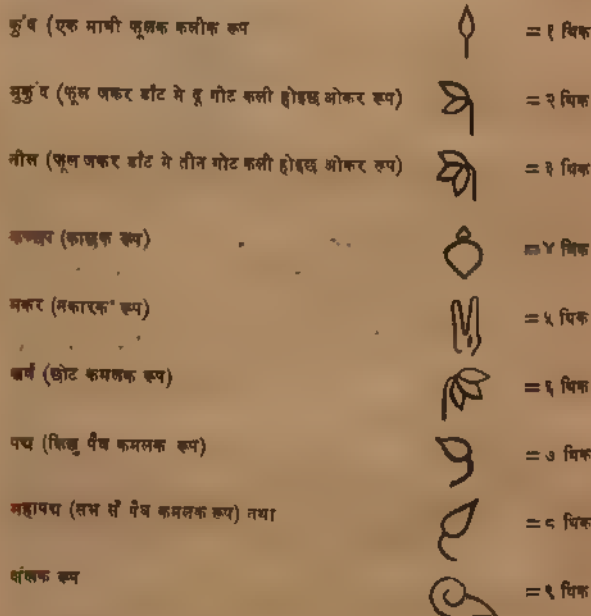 कुंद (एक मात्री फूलक कलीक रूप = १ थिक
मुकुंद (फूल जकर डाँट मे दू गोट कली होइछ ओकर रूप) = २ थिक
नील (फूल जकर डाँट मे तीन गोट कली होइछ ओकर रूप) = ३ थिक
कच्छप (काछुक रूप) = ४ थिक
मकर (मकारक रूप) = ५ थिक
खर्व (छोट कमलक रूप) = ६ थिक
पद्म (किछु पैघ कमलक रूप) = ७ थिक
महापद्म (सभ सँ पैघ कमलक रूप) तथा = ८ थिक
शंखक रूप = ९ थिक